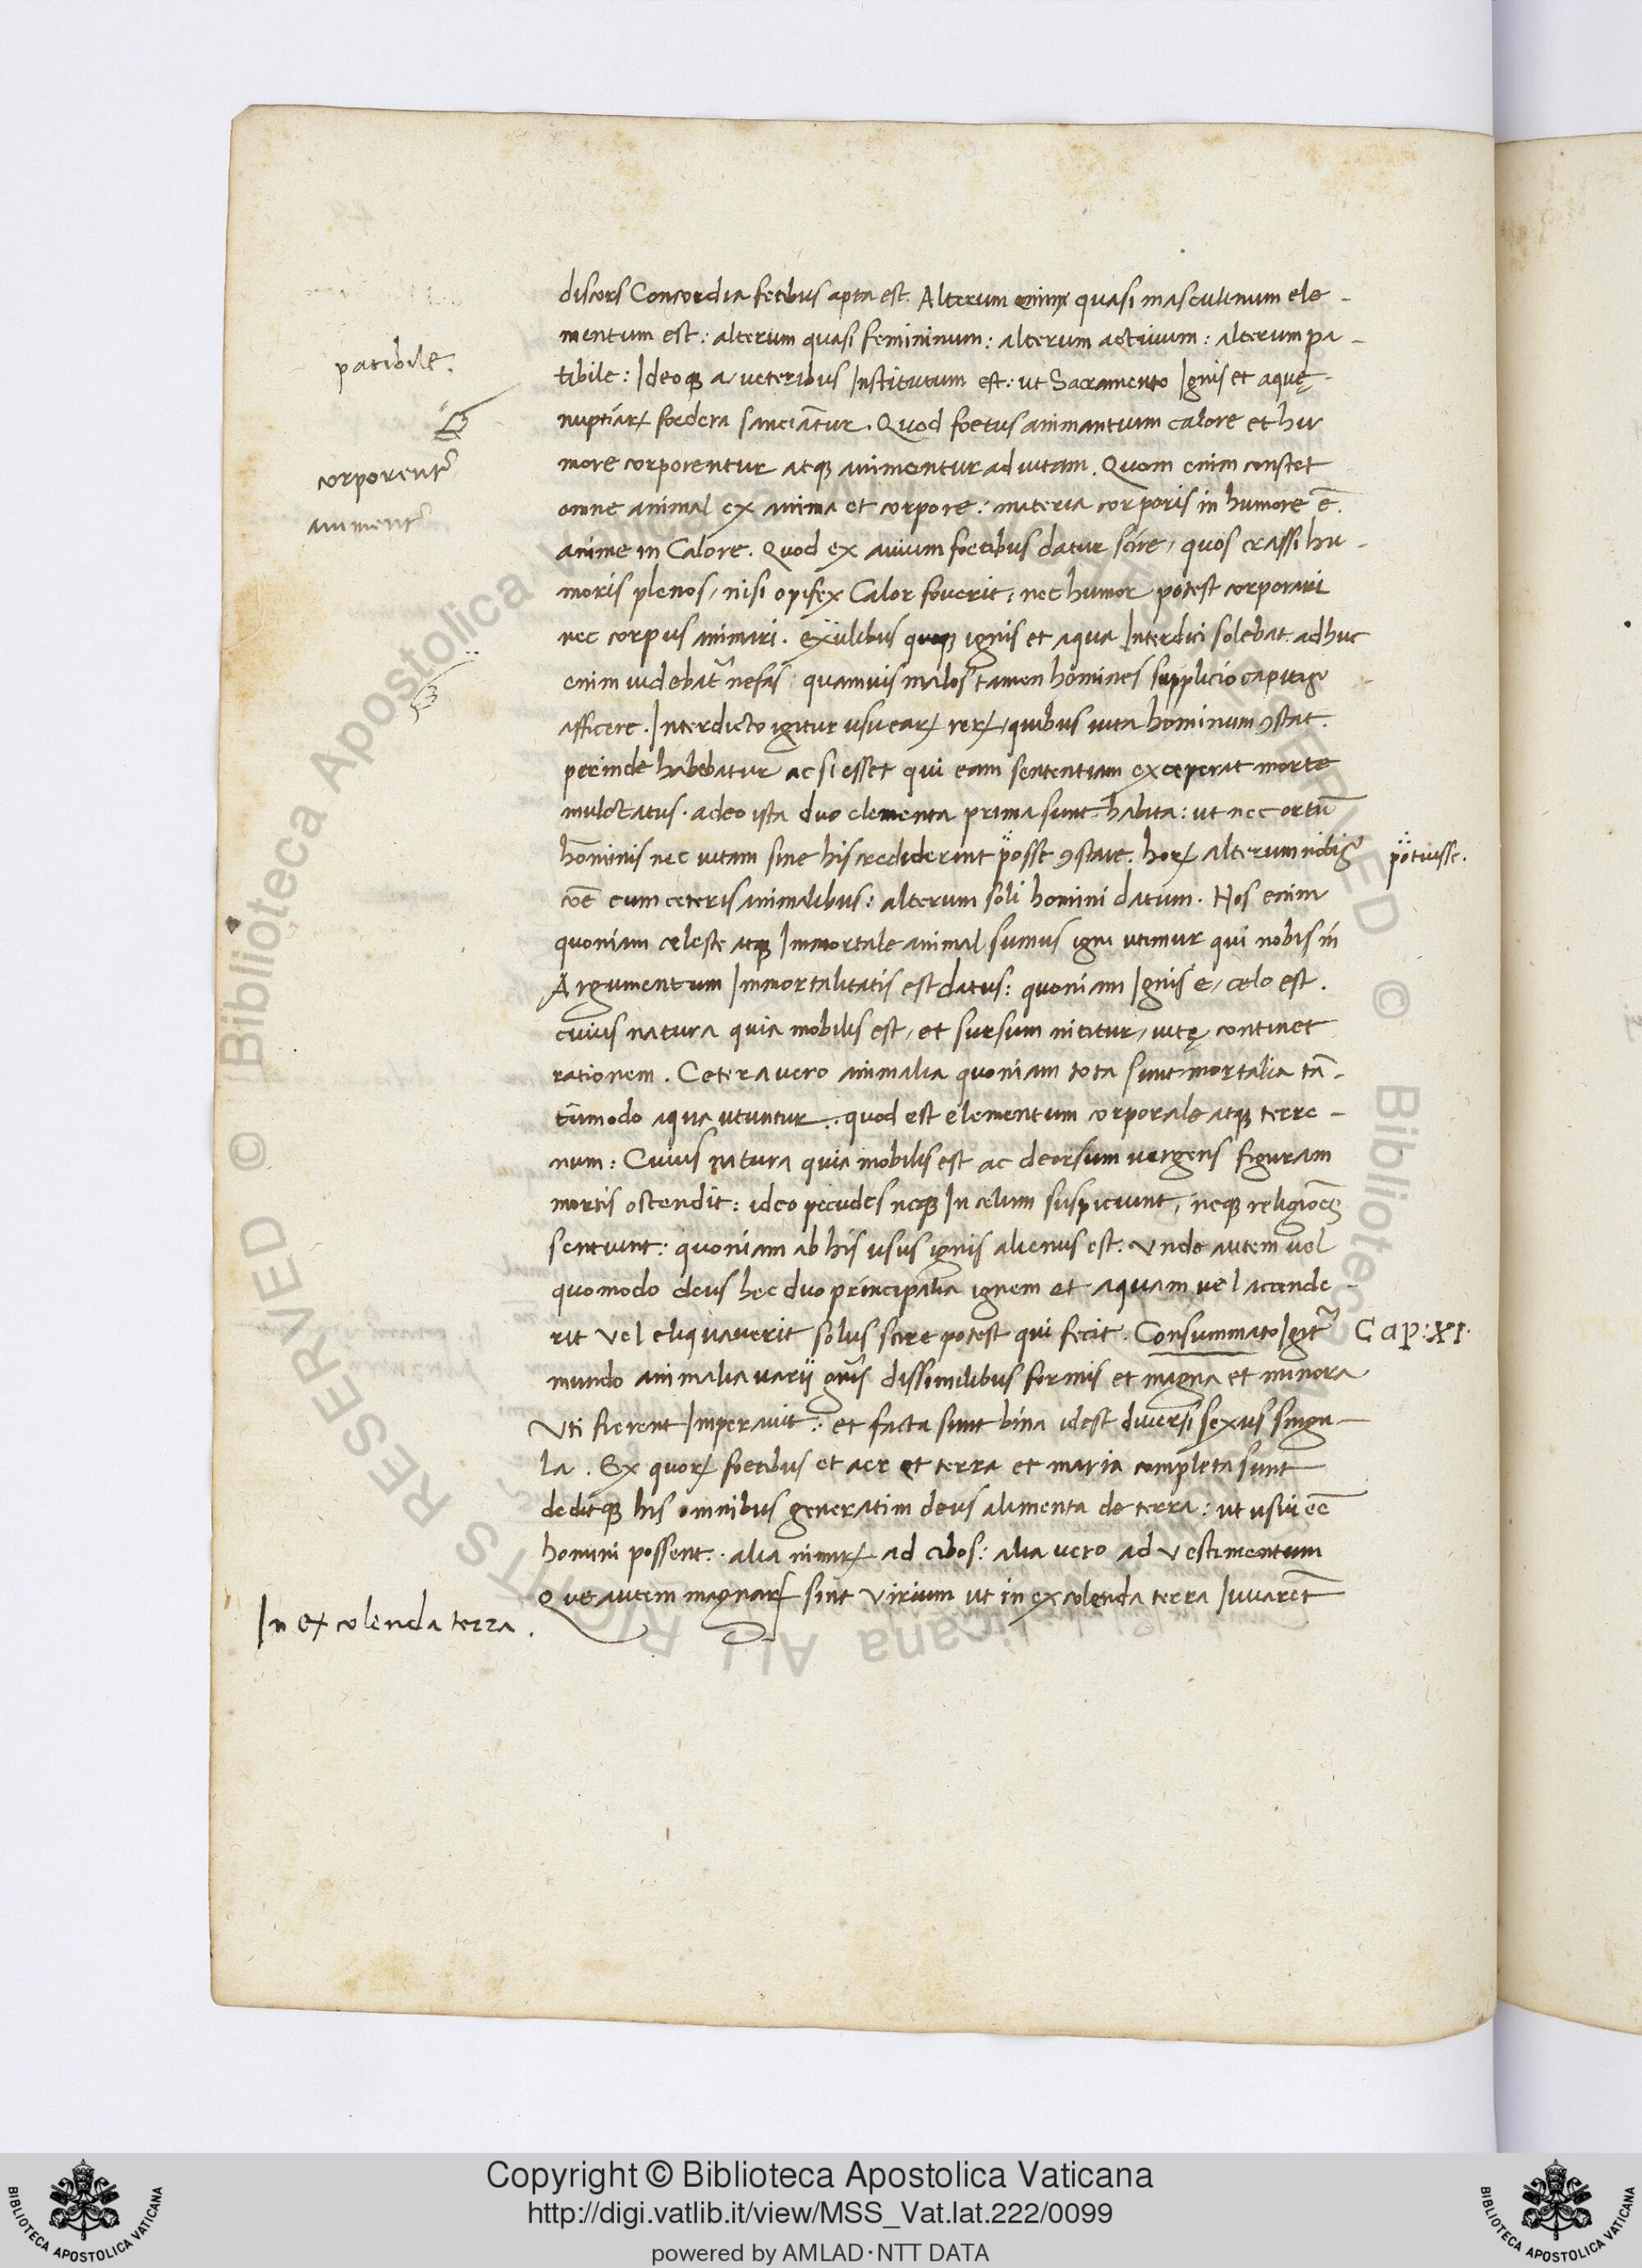 discors Concordia fetibus apta est. Alterum enim quasi masculinum ele-
mentum est: alterum quasi femininum: alterum actiuum: alterum pa-
patibile.
tibile: Ideoqꝫ a ueteribus Institutum est: ut Sacramento Ignis et aquę
nuptiaꝝ foedera sanciãtur. Quod foetus animantium calore et hu
more corporentur atqꝫ animentur ad uitam. Quom enim constet
corporent᷑
animent᷑
omne animal ex anima et corpore: materia corporis in humore ẽ.
anime in Calore. Quod ex auium foetibus datur scire, quos crassi hu-
moris plenos, nisi opifex Calor fouerit: nec humor potest corporari
nec corpus animari. exulibus quoqꝫ ignis et aqua Interdici solebat. adhuc
enim uidebat᷑ nefas quamuis malos tamen homines supplicio capitis
afficere. Interdicto igitur usu eaꝝ reꝝ, quibus uita hominum ꝯstat.
perinde habebatur ac si esset qui eam sententiam exceperat morte
mulctatus. adeo ista duo elementa prima sunt habita: ut nec ortũ
hominis nec uitam sine his crediderint posse ꝯstare. hoꝝ alterum nobis
potuisse.
cõe cum ceteris animalibus: alterum soli homini datum. Nos enim
quoniam celeste atqꝫ Immortale animal sumus igni utimur qui nobis in
Argumentum Immortalitatis est datus: quoniam Ignis e, celo est.
cuius natura quia mobilis est, et sursum nititur, uitę continet
rationem. Cetera uero animalia quoniam tota sunt mortalia tã-
tumodo aqua utuntur. quod est elementum corporale atqꝫ terre-
num: Cuius natura quia mobilis est ac deorsum uergens figuram
mortis ostendit: ideo pecudes neqꝫ In celum suspiciunt, neqꝫ religionẽ
sentiunt: quoniam ab his usus ignis alienus est. Unde autem uel
quomodo deus hec duo principalia ignem et aquam uel accende-
rit vel eliquauerit solus scire potest qui fecit. Consummato Igit᷑
Cap: XI.
mundo animalia varij gñis dissimilibus formis et magna et minora
Vti fierent Imperauit: et facta sunt bina idest diuersi sexus singu-
la. Ex quoꝝ foetibus et aer et terra et maria completa sunt
deditqꝫ his omnibus generatim deus alimenta de terra: ut usui eẽ
homini possent. alia nimiꝝ ad cibos: alia uero ad Vestimentum
Que autem magnaꝝ sint Virium ut in excolenda terra Iuuarẽt
In excolenda terra.
Copyright © Biblioteca Apostolica Vaticana
http://digi.vatlib.it/view/MSS_Vat.lat.222/0099
powered by AMLAD · NTT DATA
BIBLIOTECA APOSTOLICA VATICANA
BIBLIOTECA APOSTOLICA VATICANA